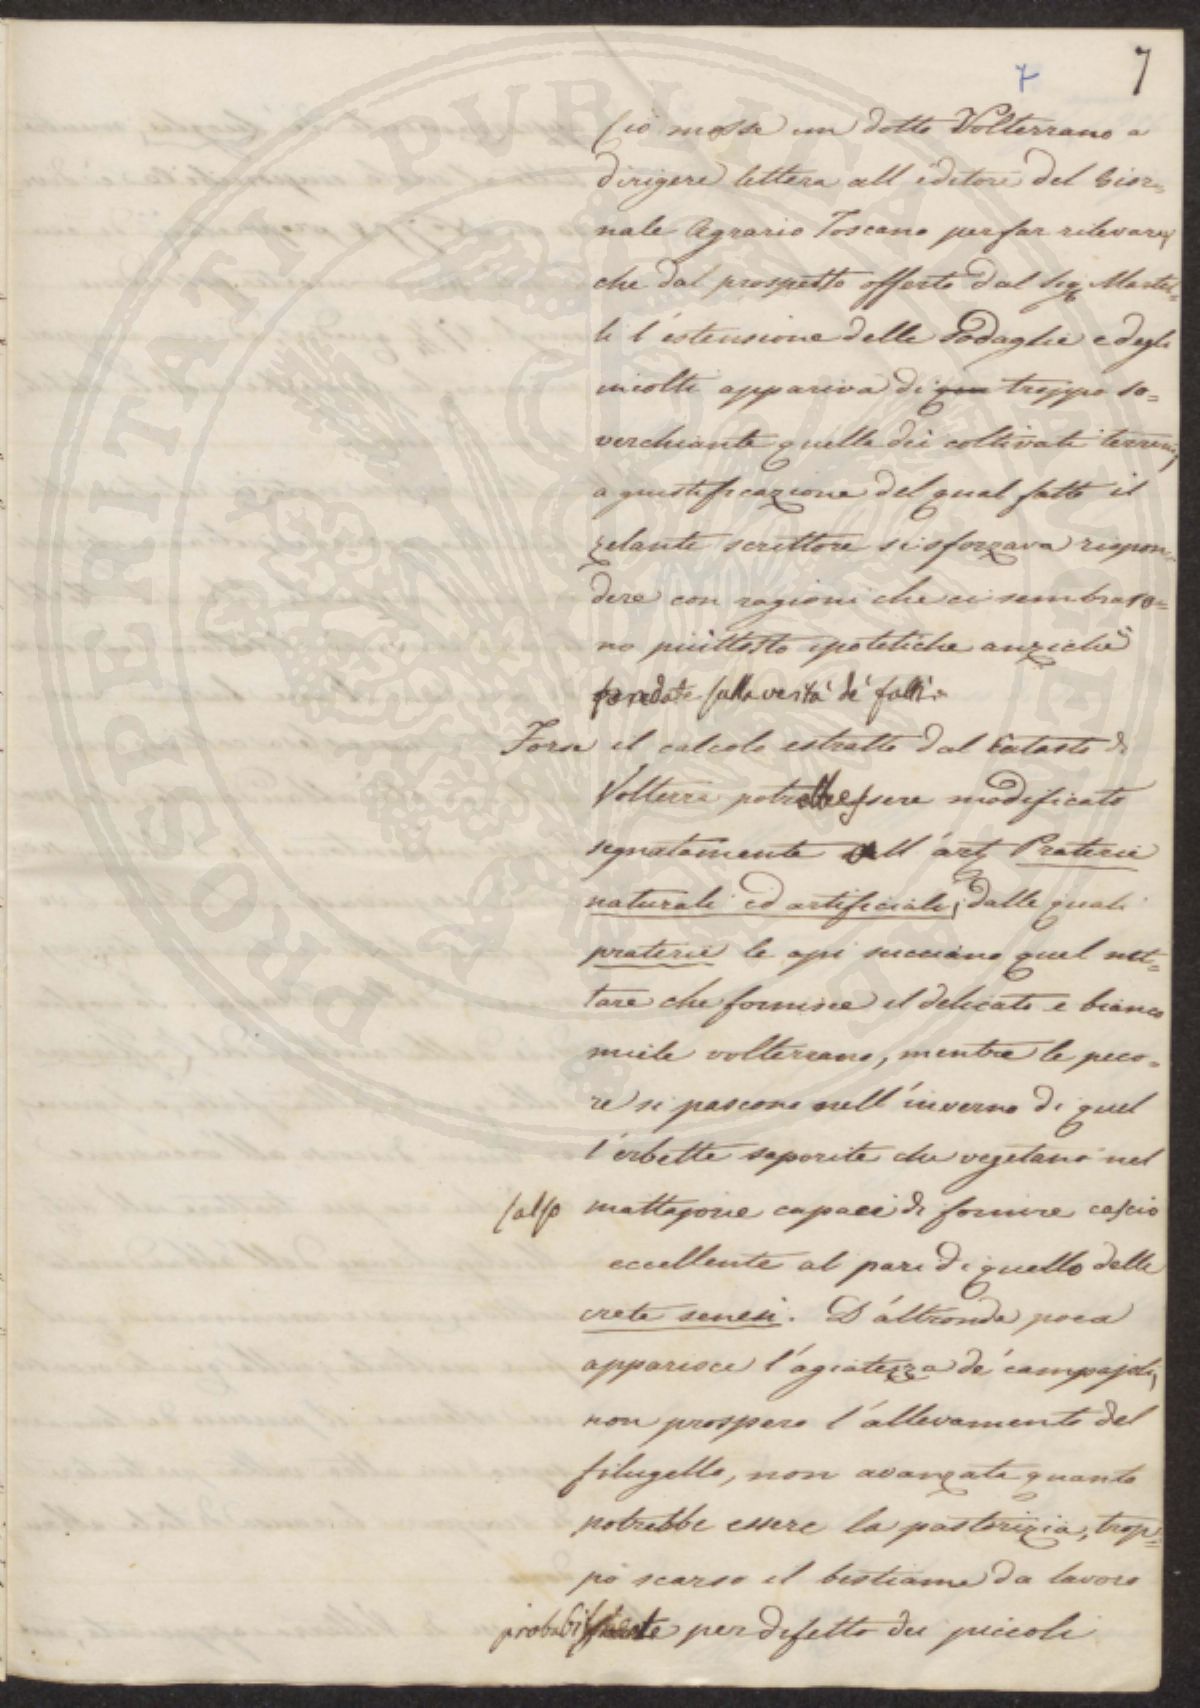 7 7
Ciò mosse un dotto Volterrano a
dirigere lettera all'editore del Gior=
nale Agrario Toscano per far rilevare,
che dal prospetto offerto dal Sig. Martel=
li l'estensione delle Sodaglie e degli
incolti appariva di gra troppo so=
verchiante quella dei coltivati terreni,
a giustificazione del qual fatto il
zelante scrittore si sforzava rispon=
dere con ragioni che ci sembraro=
no piuttosto ipotetiche anzichè
fondate sulla verità de' fatti.
Forse il calcolo estratto dal Catasto di
Volterra potrebbe essere modificato
segnatamente all'art. Praterie
naturali ed artificiali; dalle quali
praterie le api succiano quel net=
tare che fornisce il delicato e bianco
miele volterrano, mentre le peco=
re si pascono nell'inverno di quel
l'erbette saporite che vegetano nel
salso mattajone capaci di fornire cascio
eccellente al pari di quello delle
crete senesi. D'altronde poca
apparisce l'agiatezza de' campajoli,
non prospero l'allevamento del
filugello, non avanzata quanto
potrebbe essere la pastorizia, trop=
po scarso il bestiame da lavoro
probabilmente per difetto dei piccoli
PROSPERITATI PUBLICAE AUGENDAE